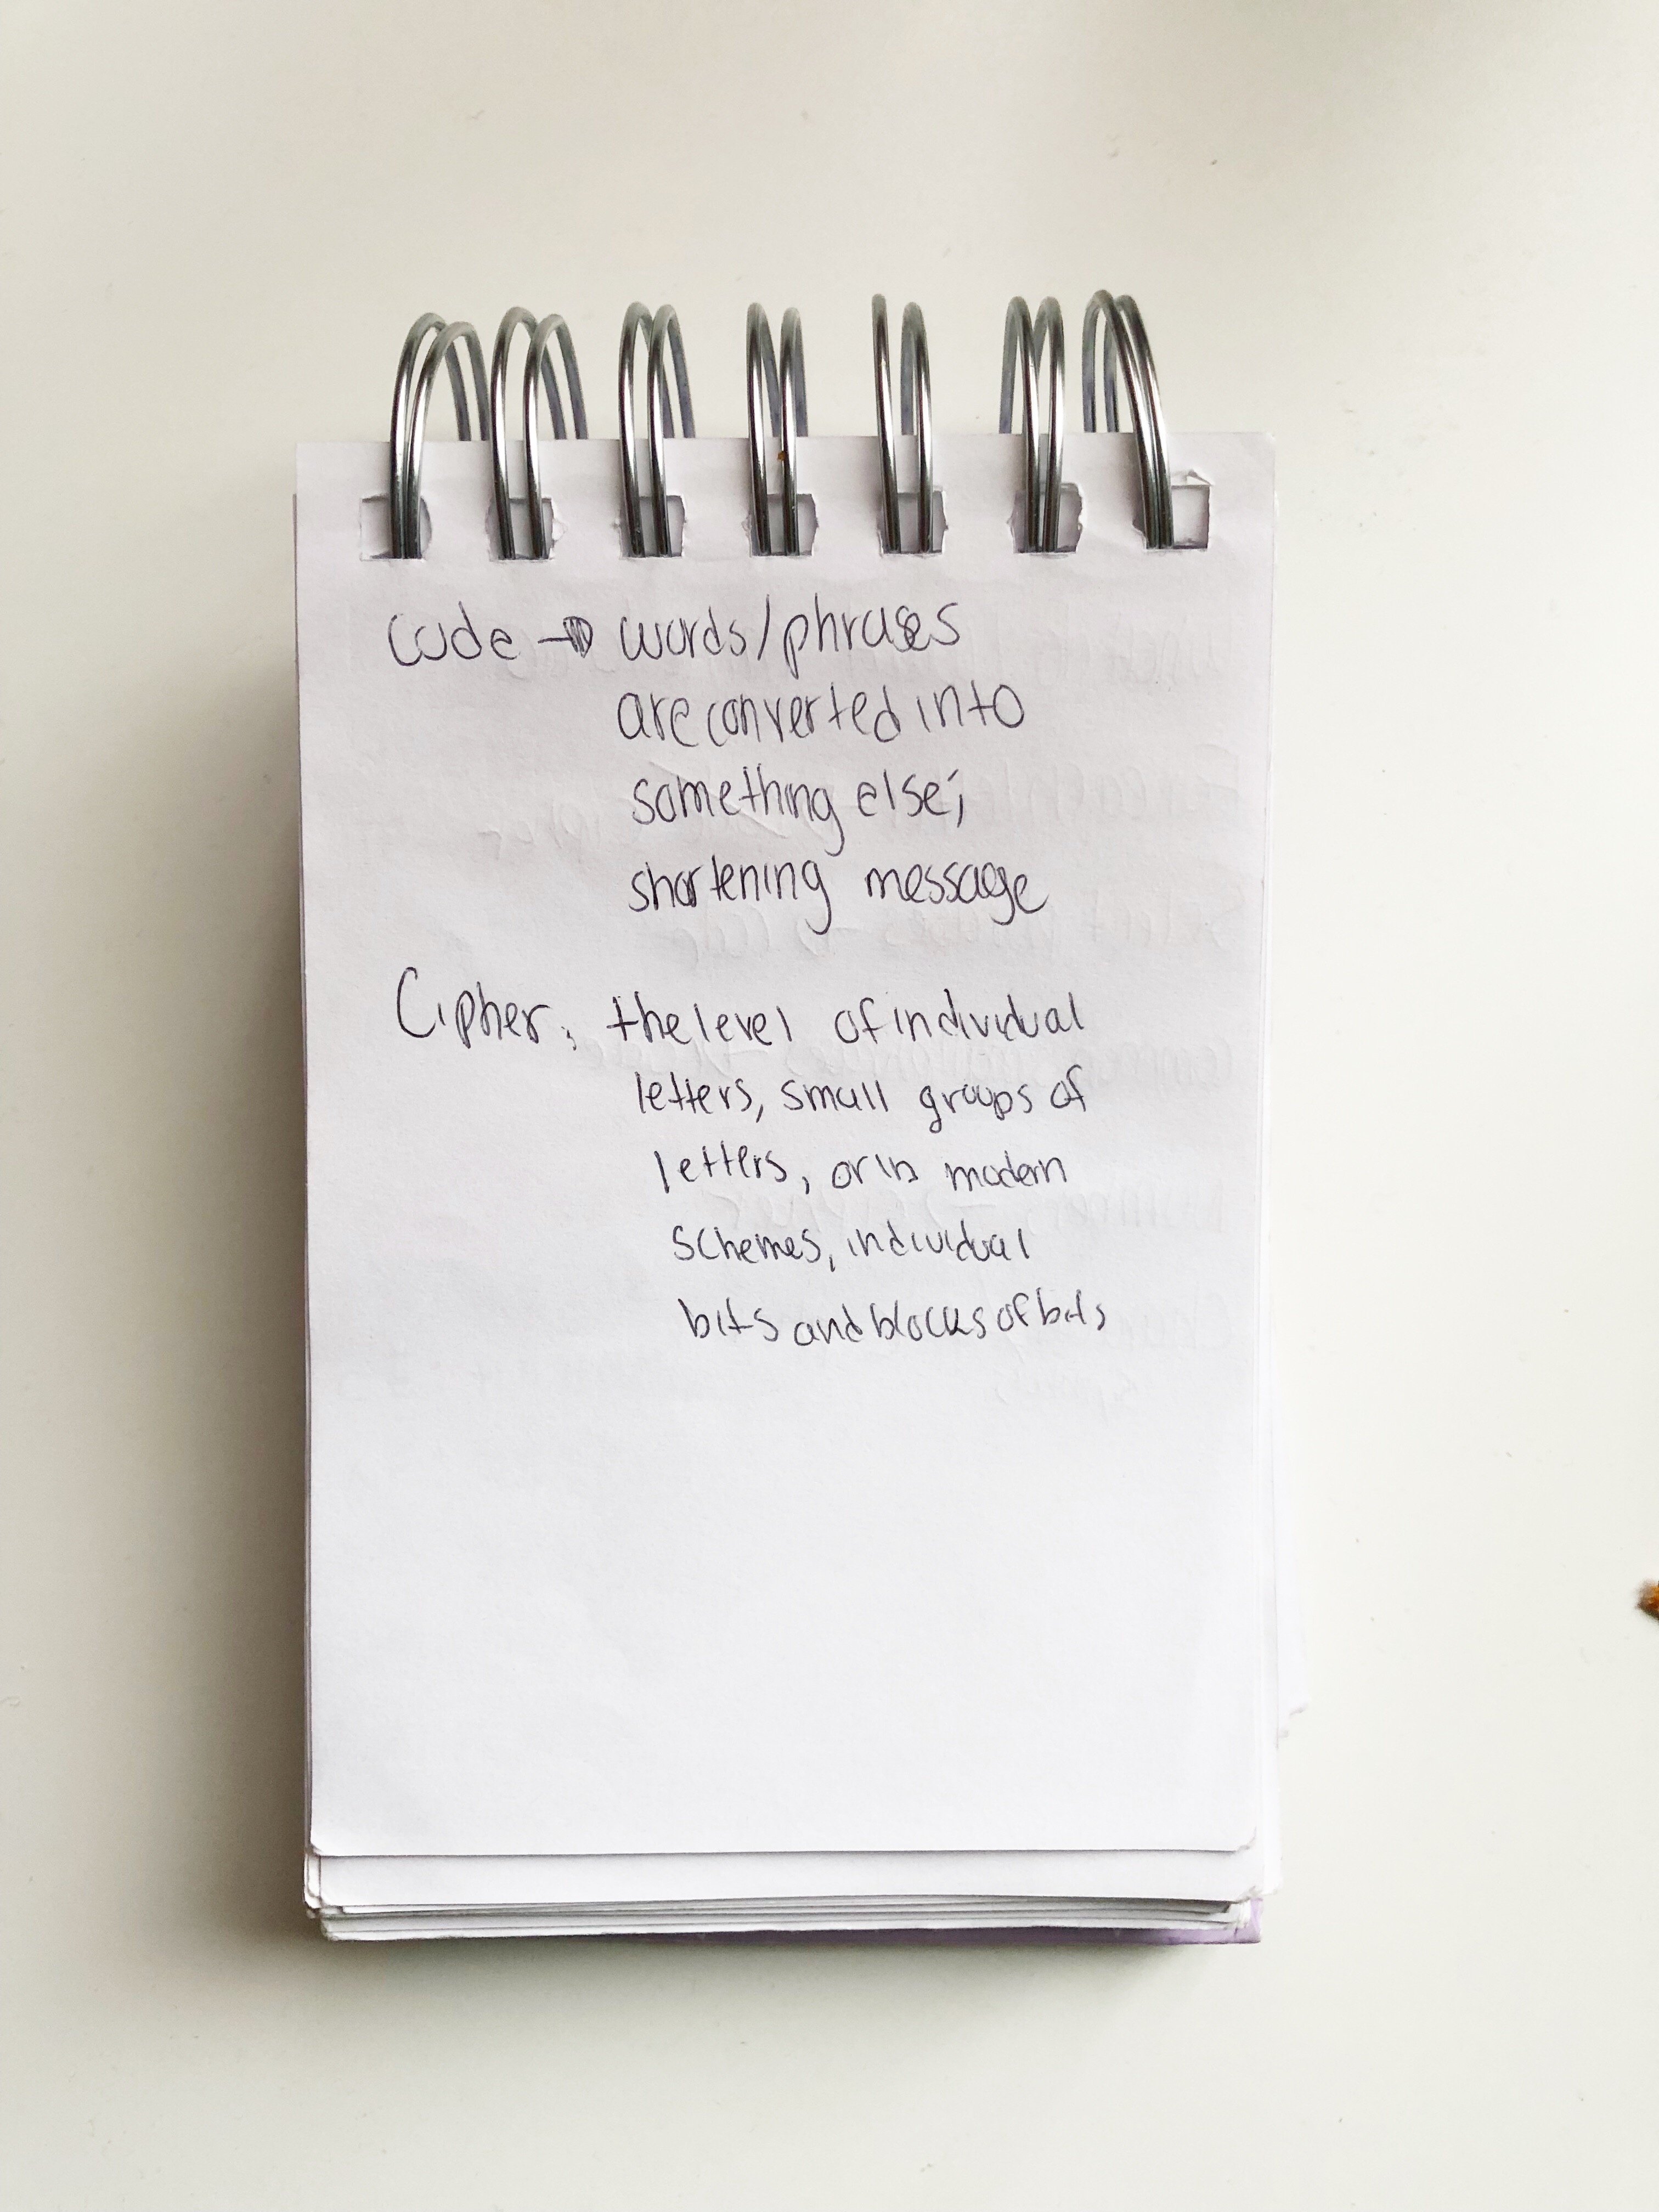 Code → words/phrases
are converted into
something else;
shortening message
Cipher: the level of individual
letters, small groups of
letters, or in modern
schemes, individual
bits and blocks of bits